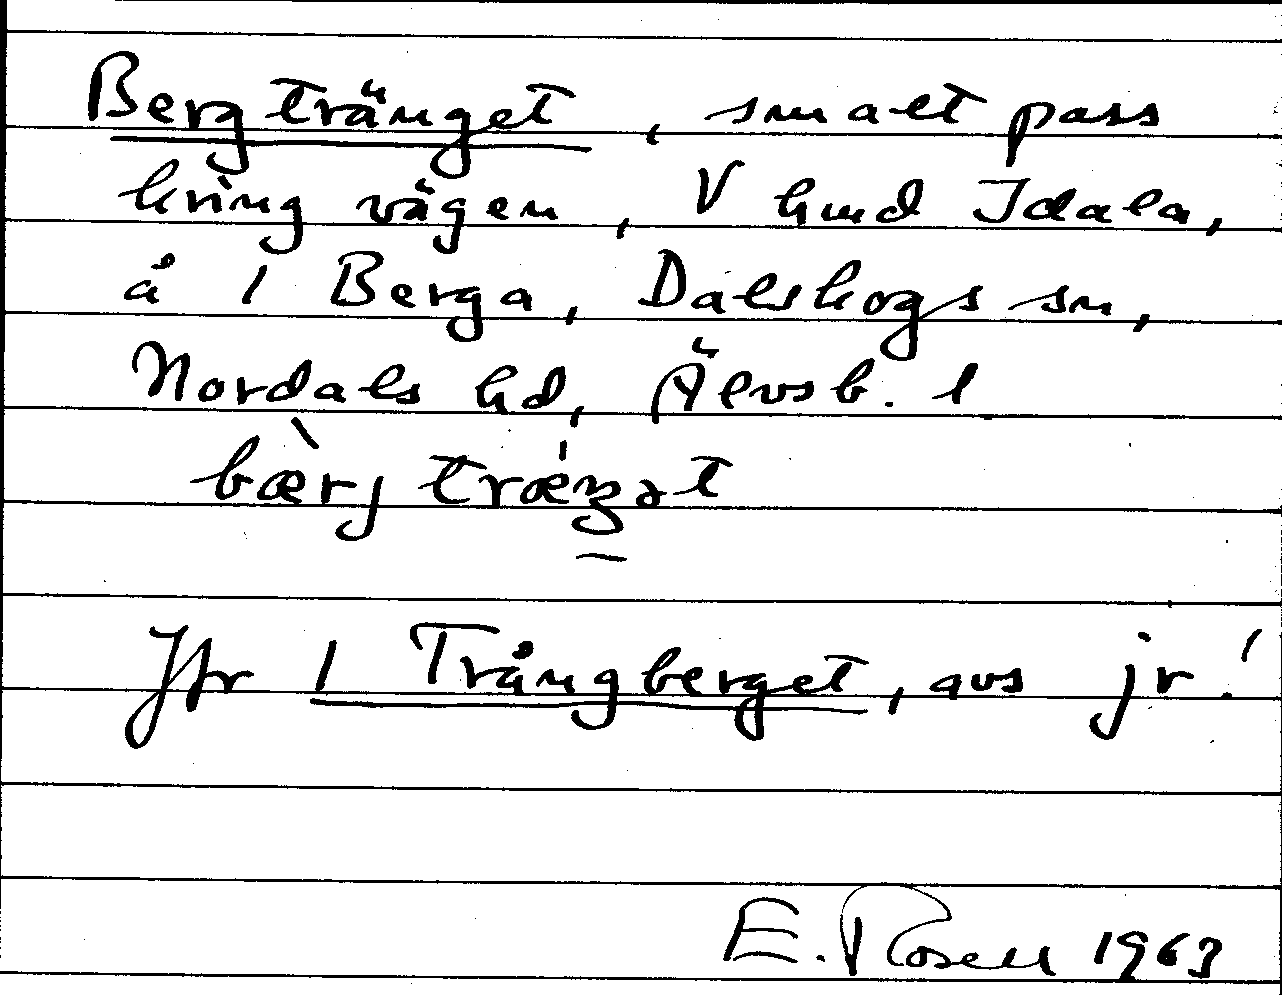 Bergtränget, smalt pass
kring vägen, V kmd Idala,
å 1 Berga, Dalskogs sn,
Nordals hd, Älvsb. l
bæ̀rj trǽŋət
Jfr 1 Trångberget, avs jr!
E. Rosell 1963